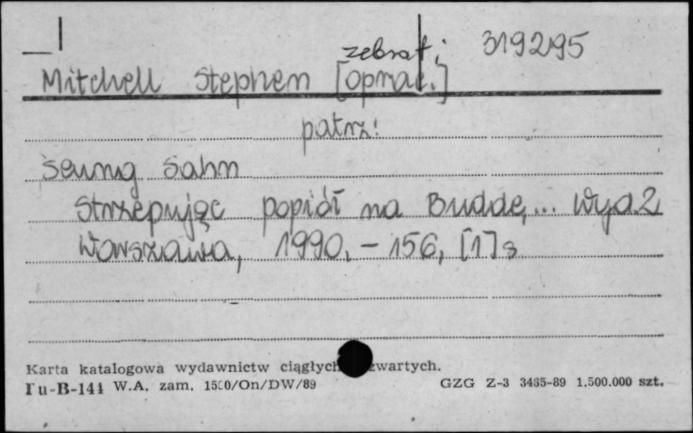 zebrał i 3192/95
Mitchell Stephen [oprac.]
patrz:
Seung Sahn
Strzepując popiół na Buddę,... Wyd.2
Warszawa, 1990. – 156, [1] s
Karta katalogowa wydawnictw ciągłych zwartych.
Pu-B-144 W.A. zam. 1500/On/DW/89 GZG Z-3 3435-89 1.500.000 szt.